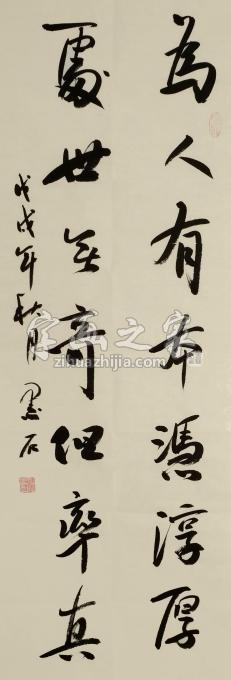 為人有本憑淳厚
處世无奇但率真
戊戌年秋月 墨石
字画之家
zihuazhijia.com